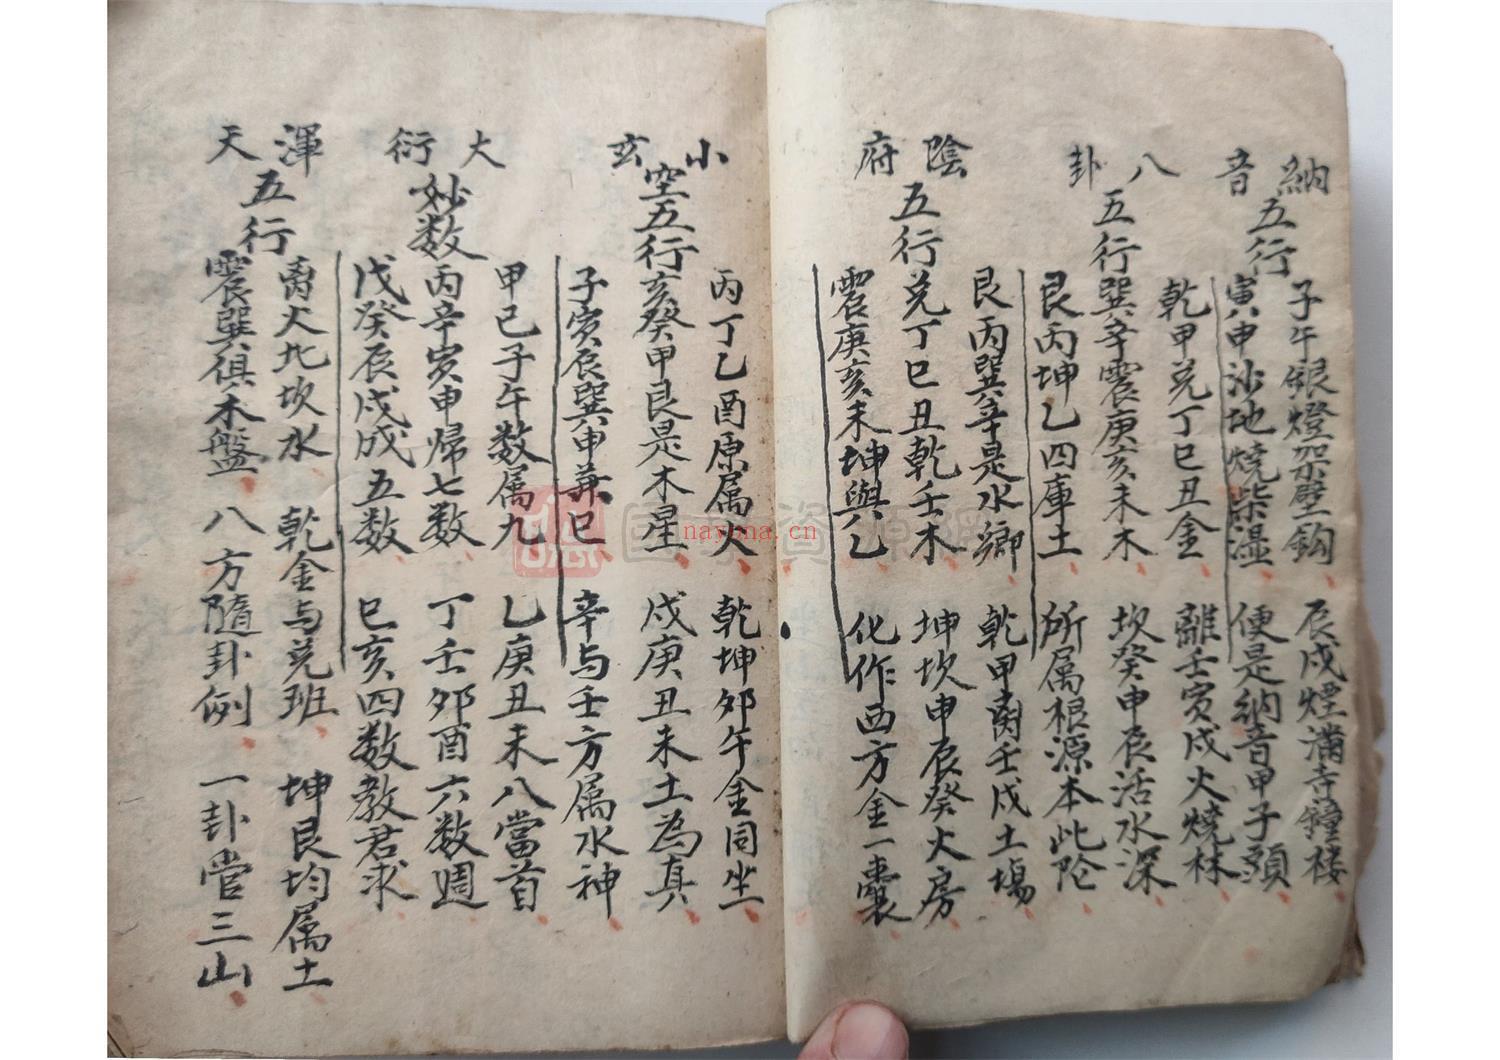 納音五行
子午銀燈架壁鈎 辰戌煙滿寺鐘楼
寅申沙地燒柴湿 便是納音甲子頭
八卦五行
乾甲兑丁巳丑金 離壬寅戌火燒林
巽辛震庚亥未木 坎癸申辰活水深
艮丙坤乙四庫土 所属根源本此陰
陰府五行
艮丙巽辛是水鄉 乾甲离壬戌土塲
兑丁巳丑乾壬木 坤坎申辰癸火房
震庚亥未坤與乙 化作西方金一囊
小玄空五行
丙丁乙酉原属火 乾坤夘午金同坐
亥癸甲艮是木星 戌庚丑未土為真
子寅辰巽申兼巳 辛与壬方属水神
大衍妙数
甲己子午数属九 乙庚丑未八當首
丙辛寅申歸七数 丁壬夘酉六数週
戊癸辰戌成五数 巳亥四数教君求
渾天五行
离火北坎水 乾金与兑班 坤艮均属土
震巽俱木盤 八方隨卦例 一卦管三山
nayona.cn